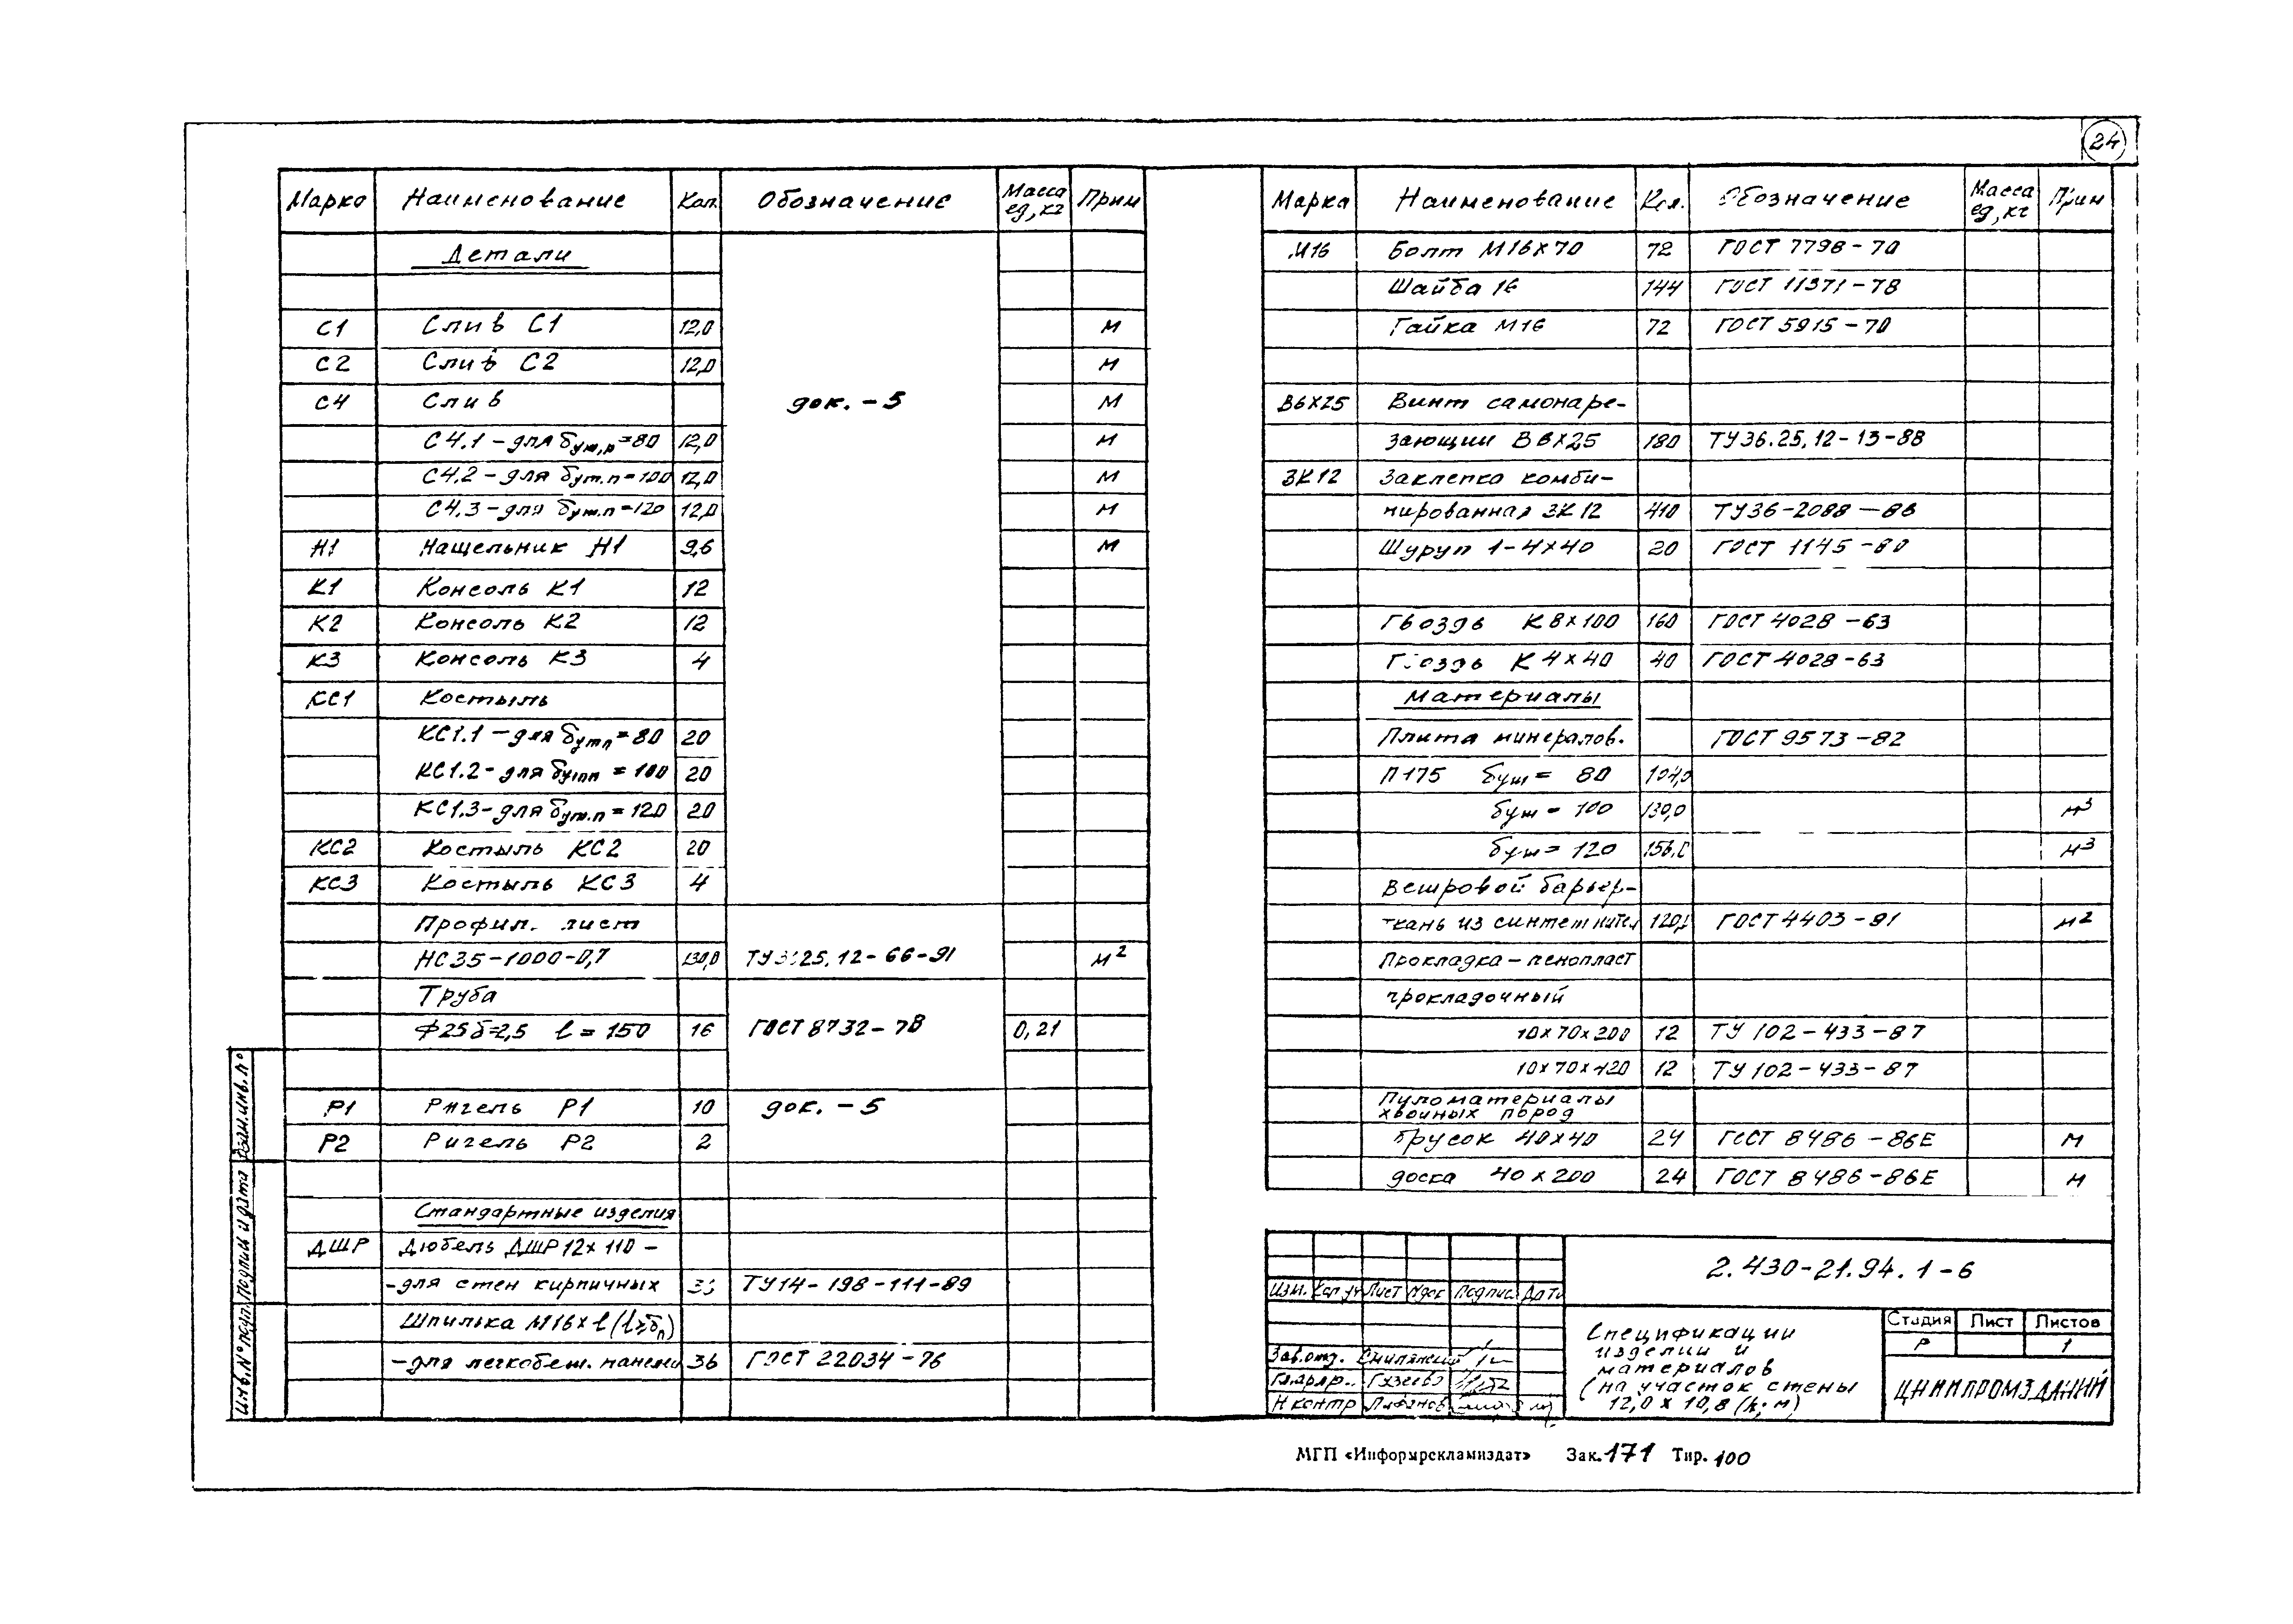 24
Марка Наименование Кол. Обозначение Масса ед, кг Прим
Детали
С1 Слив С1 12,0 м
С2 Слив С2 12,0 м
С4 Слив док. - 5 м
С4.1 - для бут.п = 80 12,0 м
С4.2 - для бут.п = 100 12,0 м
С4.3 - для бут.п = 120 12,0 м
Н1 Нащельник Н1 9,6 м
К1 Консоль К1 12
К2 Консоль К2 12
К3 Консоль К3 4
КС1 Костыль
КС1.1 - для бутп = 80 20
КС1.2 - для бутп = 100 20
КС1.3 - для бут.п = 120 20
КС2 Костыль КС2 20
КС3 Костыль КС3 4
Профил. лист
НС35-1000-0,7 130,0 м²
Труба
Ф25 б=2,5 l = 150 16 ГОСТ 8732-78 0,21
Р1 Ригель Р1 10 док. - 5
Р2 Ригель Р2 2
Стандартные изделия
ДШР Дюбель ДШР 12х110 -
- для стен кирпичных ТУ14-198-111-89
Шпилька М16хl (l≥бп)
- для легкобет. панели 36 ГОСТ 22034-76
Марка Наименование Кол. Обозначение Масса ед, кг Прим
М16 Болт М16х70 72 ГОСТ 7798-70
Шайба 16 144 ГОСТ 11371-78
Гайка М16 72 ГОСТ 5915-70
В6х25 Винт самонаре-
зающий В6х25 180 ТУ36.25.12-13-88
ЗК12 Заклепка комби-
нированная ЗК12 410 ТУ36-2088-86
Шуруп 1-4х40 20 ГОСТ 1145-80
Гвоздь К 8х100 160 ГОСТ 4028-63
Гвоздь К 4х40 40 ГОСТ 4028-63
Материалы
Плита минералов. ГОСТ 9573-82
П175 бут = 80 104,0
бут = 100 130,0 м³
бут = 120 156,0 м³
Ветровой барьер-
ткань из синтет ГОСТ 4403-91 м²
Прокладка - пенопласт
прокладочный
10х70х200 12 ТУ 102-433-87
10х70х120 12 ТУ 102-433-87
Пиломатериалы
хвойных пород
брусок 40х40 24 ГОСТ 8486-86Е м
доска 40х200 24 ГОСТ 8486-86Е м
Инв.№ подл. Подпись и дата Взам.инв.№
2.430-21.94.1-6
Изм. Кол.уч Лист №док Подпис Дата
Спецификации
изделий и
материалов
(на участок стены
12,0 х 10,8 (h; м)
Стадия Лист Листов
Р 1
ЦНИИПРОМЗДАНИЙ
Зав.отд. Смилянский
Гл.арх.
Н контр
МГП «Информрекламиздат» Зак. 171 Тир. 100